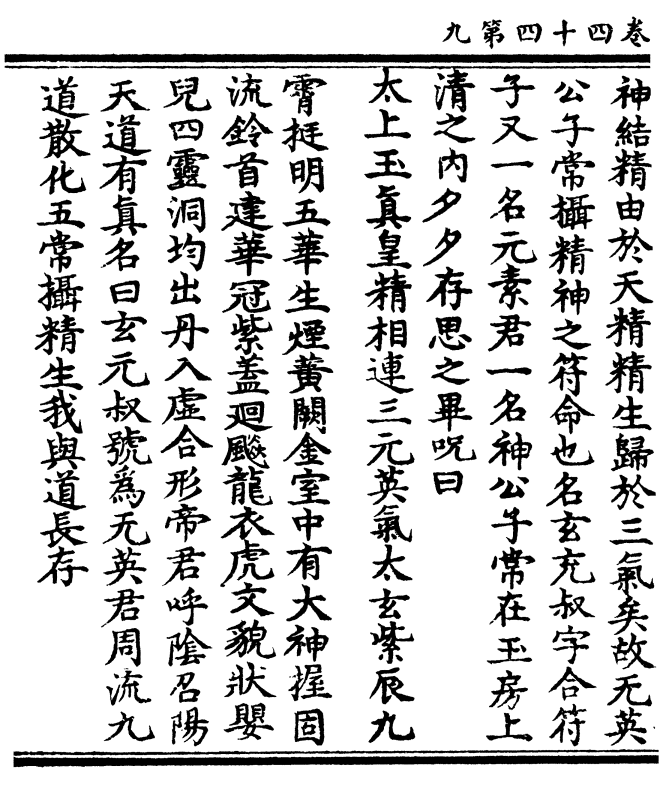 卷四十四第九
神結精由於天精精生歸於三氣矣故无英
公子常攝精神之符命也名玄充叔字合符
子又一名元素君一名神公子常在玉房上
清之內夕夕存思之畢呪曰
太上玉真皇精相連三元英氣太玄紫辰九
霄挺明五華生煙黃闕金室中有大神握固
流鈴首建華冠紫蓋廻飈龍衣虎文貌狀嬰
兒四靈洞均出丹入虛合形帝君呼陰召陽
天道有真名曰玄元叔號為无英君周流九
道散化五常攝精生我與道長存